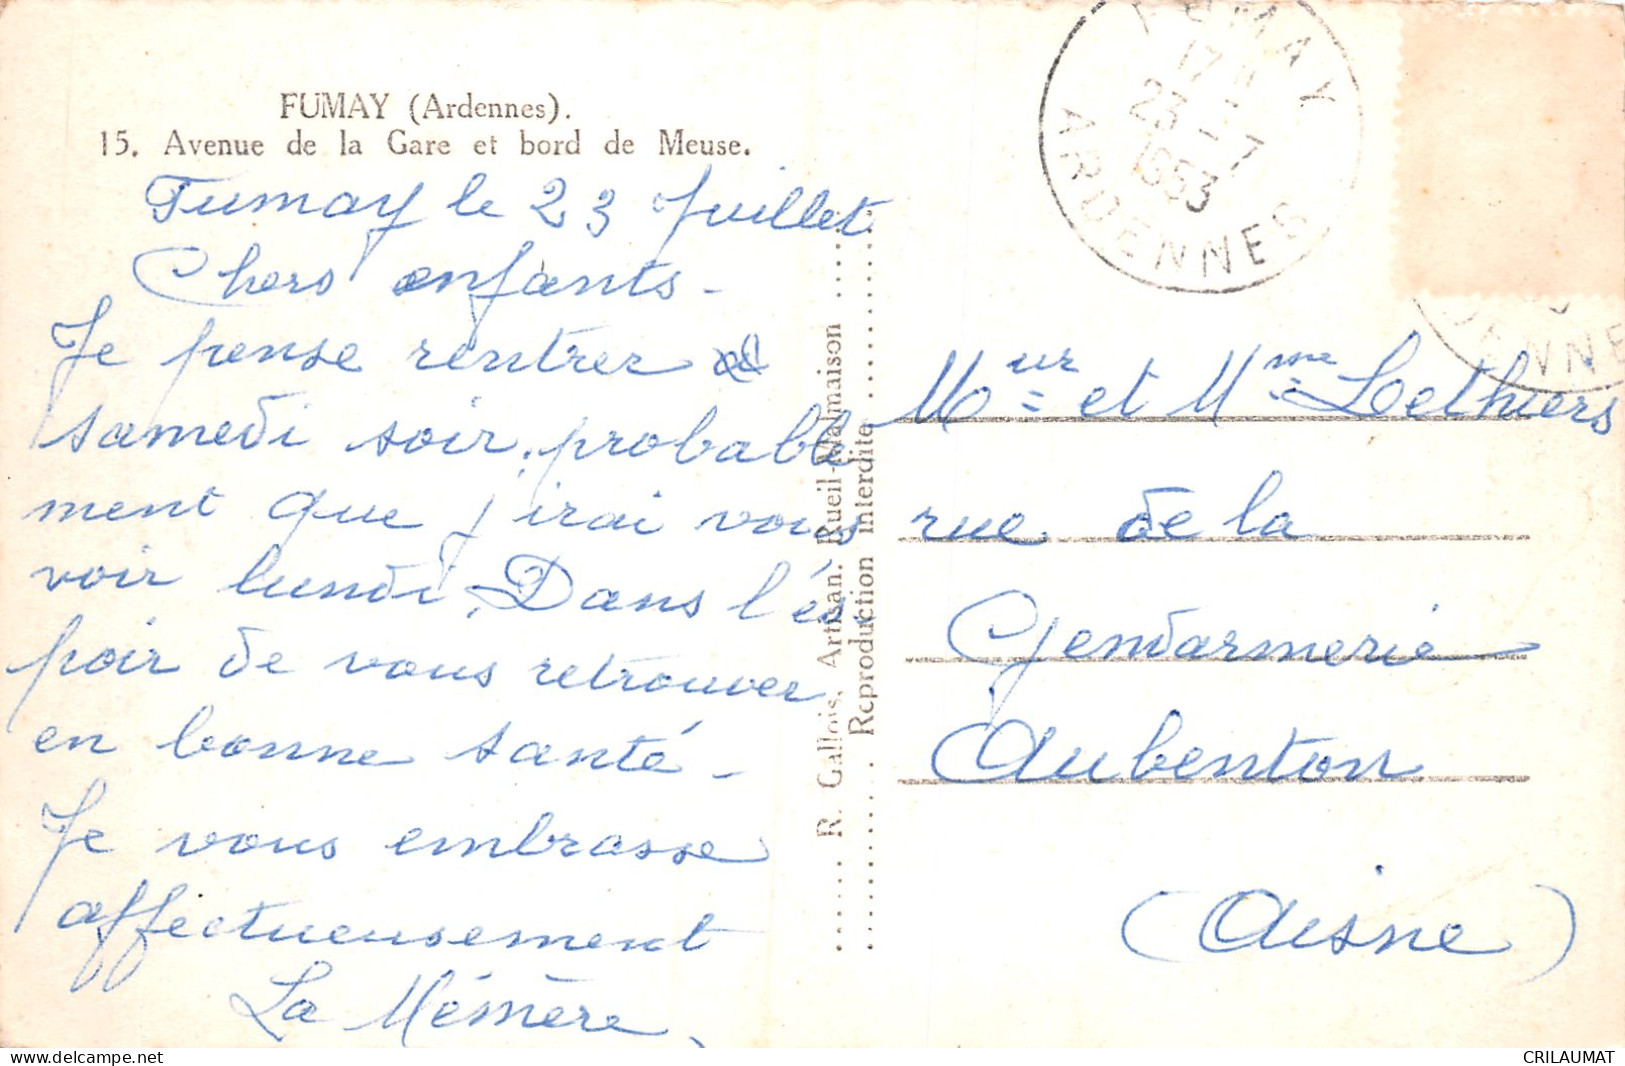 FUMAY (Ardennes).
15. Avenue de la Gare et bord de Meuse.
Fumay le 23 Juillet
Chers enfants -
Je pense rentrer
samedi soir. probable
ment que j'irai vous
voir lundi. Dans l'es-
poir de vous retrouver
en bonne santé -
Je vous embrasse
affectueusement
La Mémère
R. Gallois, Artisan. Rueil-Malmaison
Reproduction interdite
FUMAY
17 H
23 - 7
1953
ARDENNES
ENNE
Mr et Mme Lethiers
rue de la
Gendarmerie
Aubenton
(Aisne)
CRILAUMAT